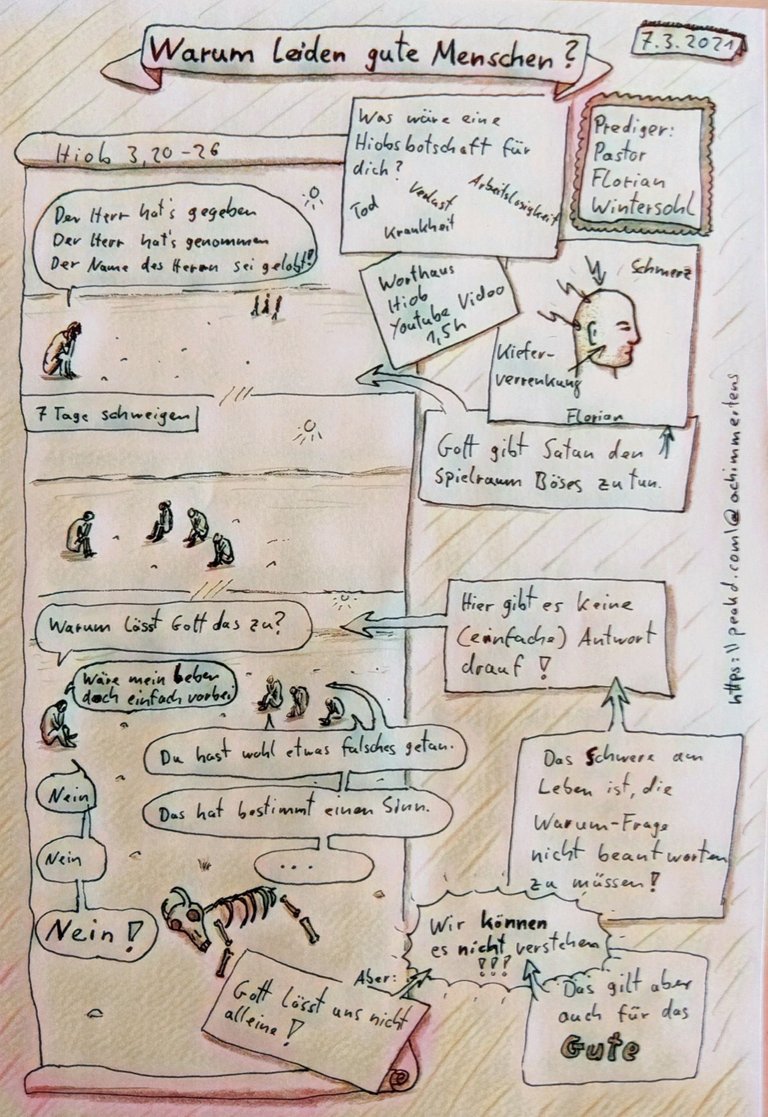 Warum Leiden gute Menschen?
7.3.2021
Hiob 3,20-26
Was wäre eine
Hiobsbotschaft für
dich?
Tod
Verlust
Arbeitslosigkeit
Krankheit
Prediger:
Pastor
Florian
Wintersohl
Der Herr hat's gegeben
Der Herr hat's genommen
Der Name des Herrn sei gelobt!
Worthaus
Hiob
Youtube Video
1,5h
Schmerz
Kiefer-
verrenkung
Florian
7 Tage schweigen
Gott gibt Satan den
Spielraum Böses zu tun.
Warum lässt Gott das zu?
Hier gibt es keine
(einfache) Antwort
drauf!
Wäre mein Leben
doch einfach vorbei
Du hast wohl etwas falsches getan.
Das hat bestimmt einen Sinn.
...
Nein
Nein
Nein!
Das Schwere am
Leben ist, die
Warum-Frage
nicht beantworten
zu müssen!
Wir können
es nicht verstehen
!!!
Aber:
Gott lässt uns nicht
alleine!
Das gilt aber
auch für das
Gute
https://peakd.com/@achimmertens